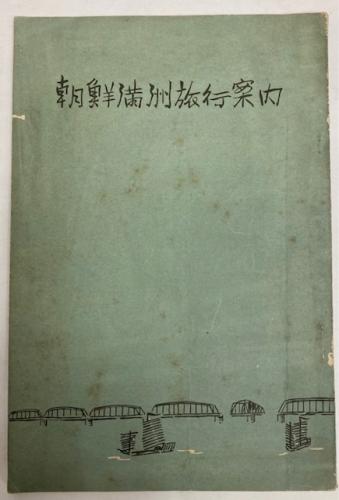 朝鮮滿洲旅行案内